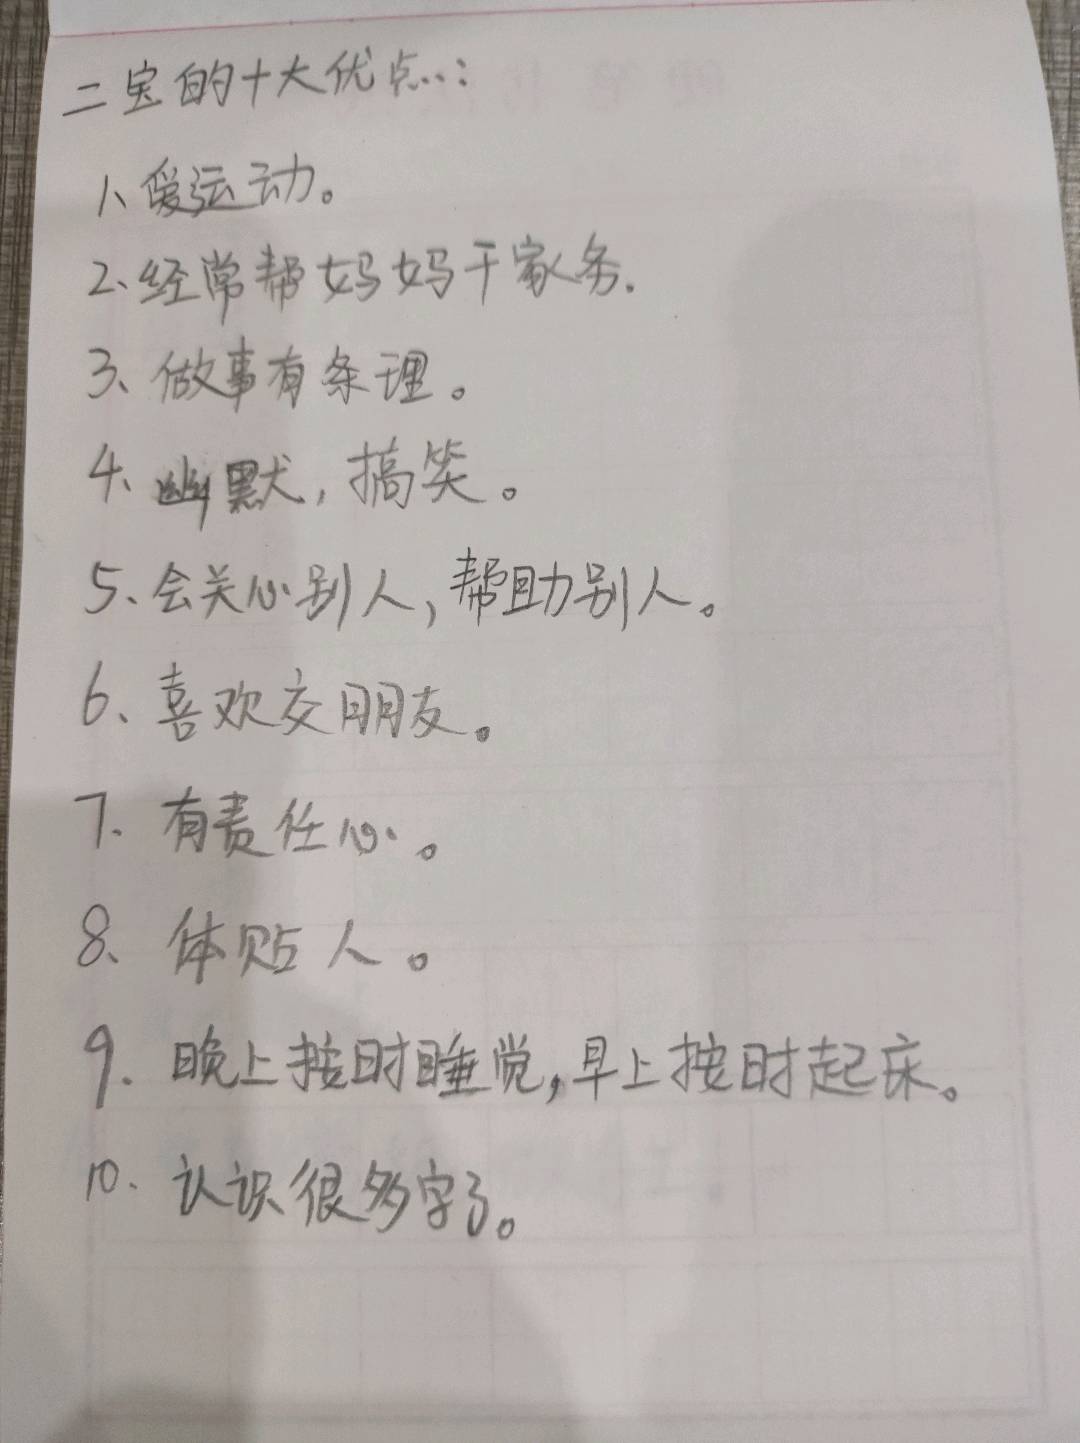 二宝的十大优点:
1、爱运动。
2、经常帮妈妈干家务.
3、做事有条理。
4、幽默,搞笑。
5、会关心别人,帮助别人。
6、喜欢交朋友。
7、有责任心。
8、体贴人。
9.晚上按时睡觉,早上按时起床。
10.认识很多字了。